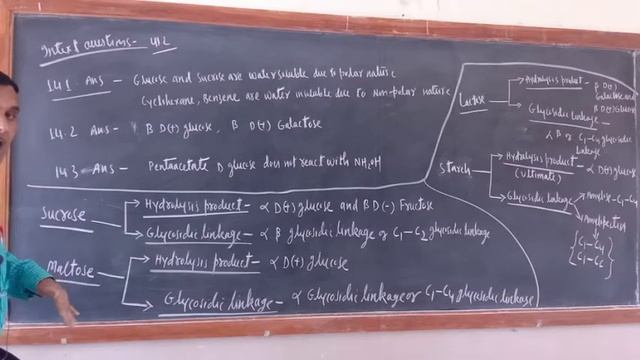 Intext questions - 412
14.1. Ans - Glucose and sucrose are water soluble due to polar nature
Cyclohexane, Benzene are water insoluble due to Non-polar nature
14.2 Ans - β D(+) glucose, β D(+) Galactose
14.3 Ans - Pentaacetate D glucose does not react with NH2OH
Sucrose
Hydrolysis product - α D(+) glucose and β D(-) Fructose
Glycosidic linkage - α β glycosidic linkage or C1-C2 glycosidic linkage
Maltose
Hydrolysis product - α D(+) glucose
Glycosidic linkage - α Glycosidic linkage or C1-C4 glycosidic linkage
Lactose
Hydrolysis product - β D(+)
Galactose and
β D(+) Glucose
Glycosidic Linkage -
β or C1-C4 glycosidic
Linkage
Starch
Hydrolysis product - α D(+) glucose
(Ultimate)
Glycosidic Linkage
Amylose - C1-C4
Amylopectin
C1-C4
C1-C6